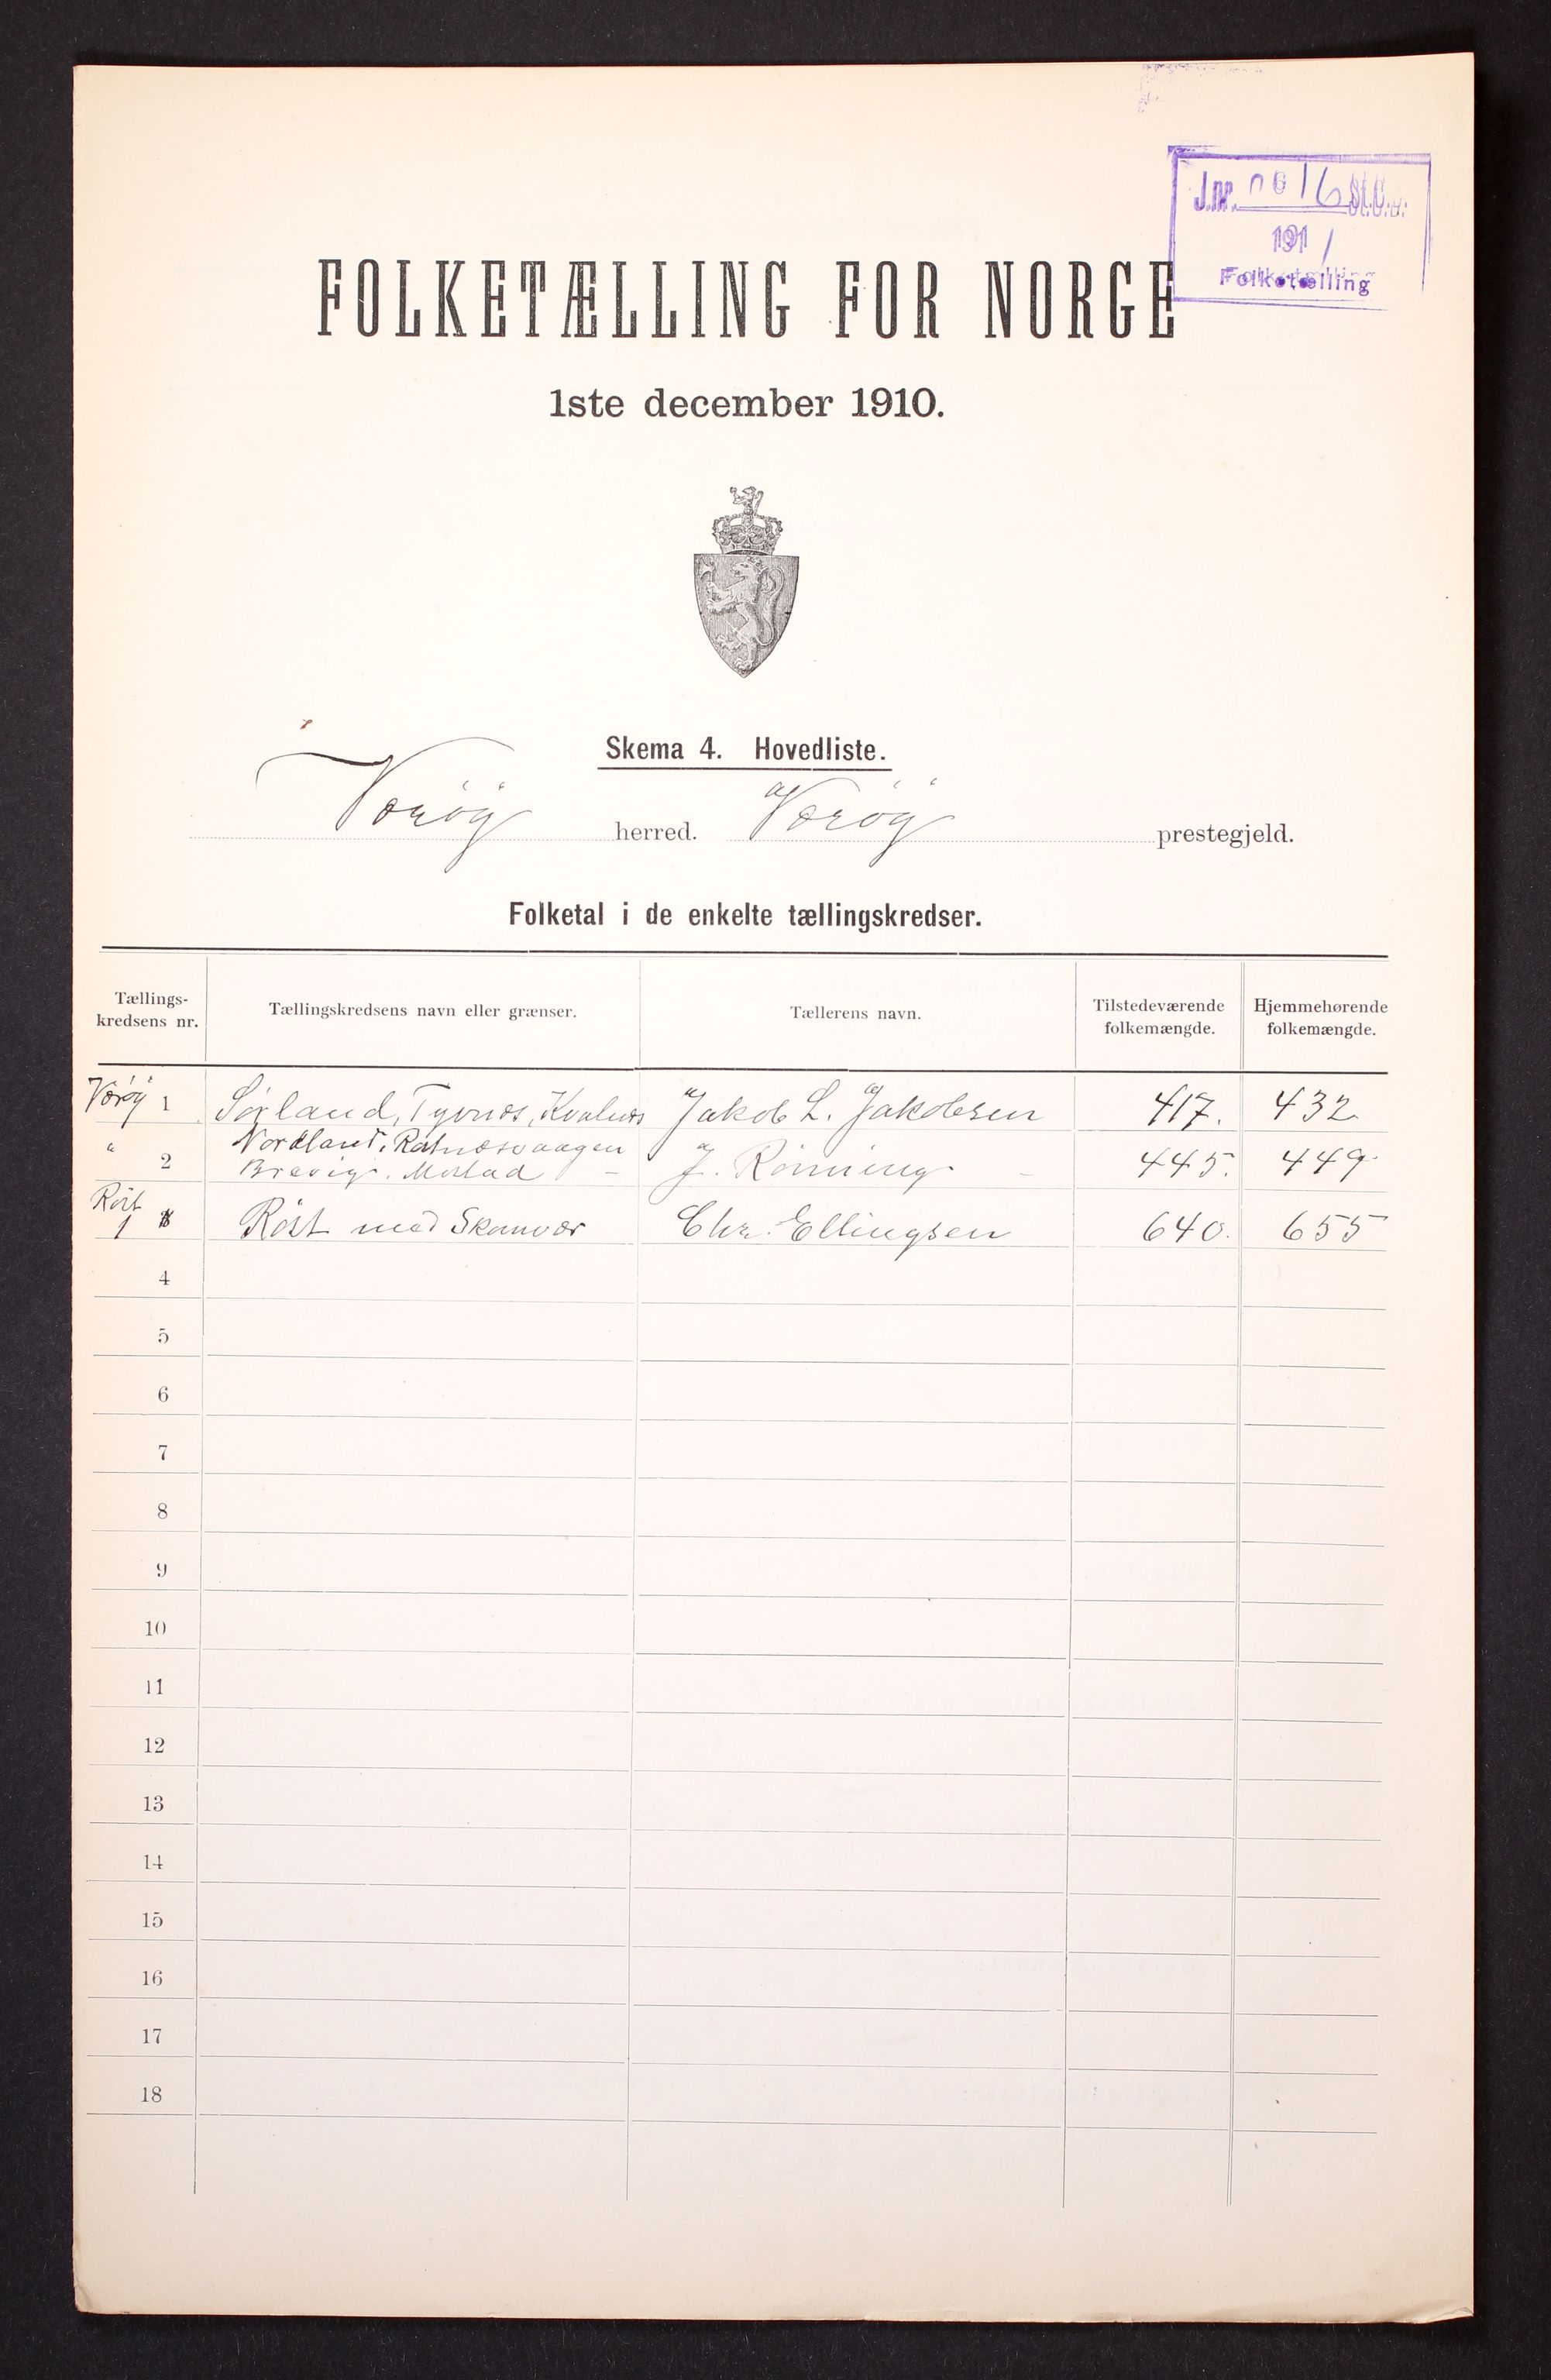 J.nr. 0616 St.C.B.
1911
Folketælling
FOLKETÆLLING FOR NORGE
1ste december 1910.
Skema 4. Hovedliste.
Værøy herred. Værøy prestegjeld.
Folketal i de enkelte tællingskredser.
Tællings-kredsens nr. Tællingskredsens navn eller grænser. Tællerens navn. Tilstedeværende folkemængde. Hjemmehørende folkemængde.
Værøy 1 Sørland, Tyvnæs, Kvalnæs Jakob L. Jakobsen 417. 432
" 2 Nordland, Røstnæsvaagen
Brevig. Mostad - J. Rönning - 445. 449
Röst
1 Röst med Skomvær Chr. Ellingsen 640. 655
4
5
6
7
8
9
10
11
12
13
14
15
16
17
18